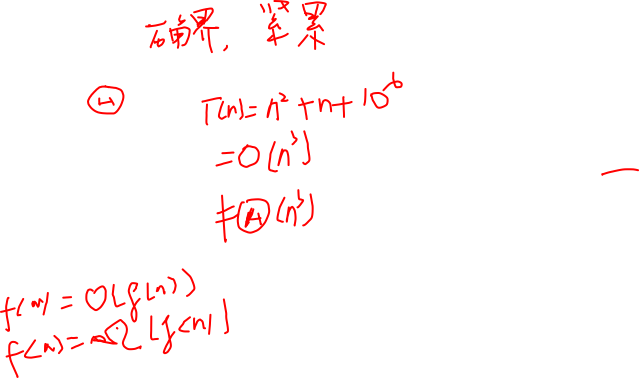 确界, 紧界
Θ
T(n)=n²+n+10⁻⁶
=O(n³)
≠Θ(n³)
f(n)=O(g(n))
f(n)=Ω(g(n))